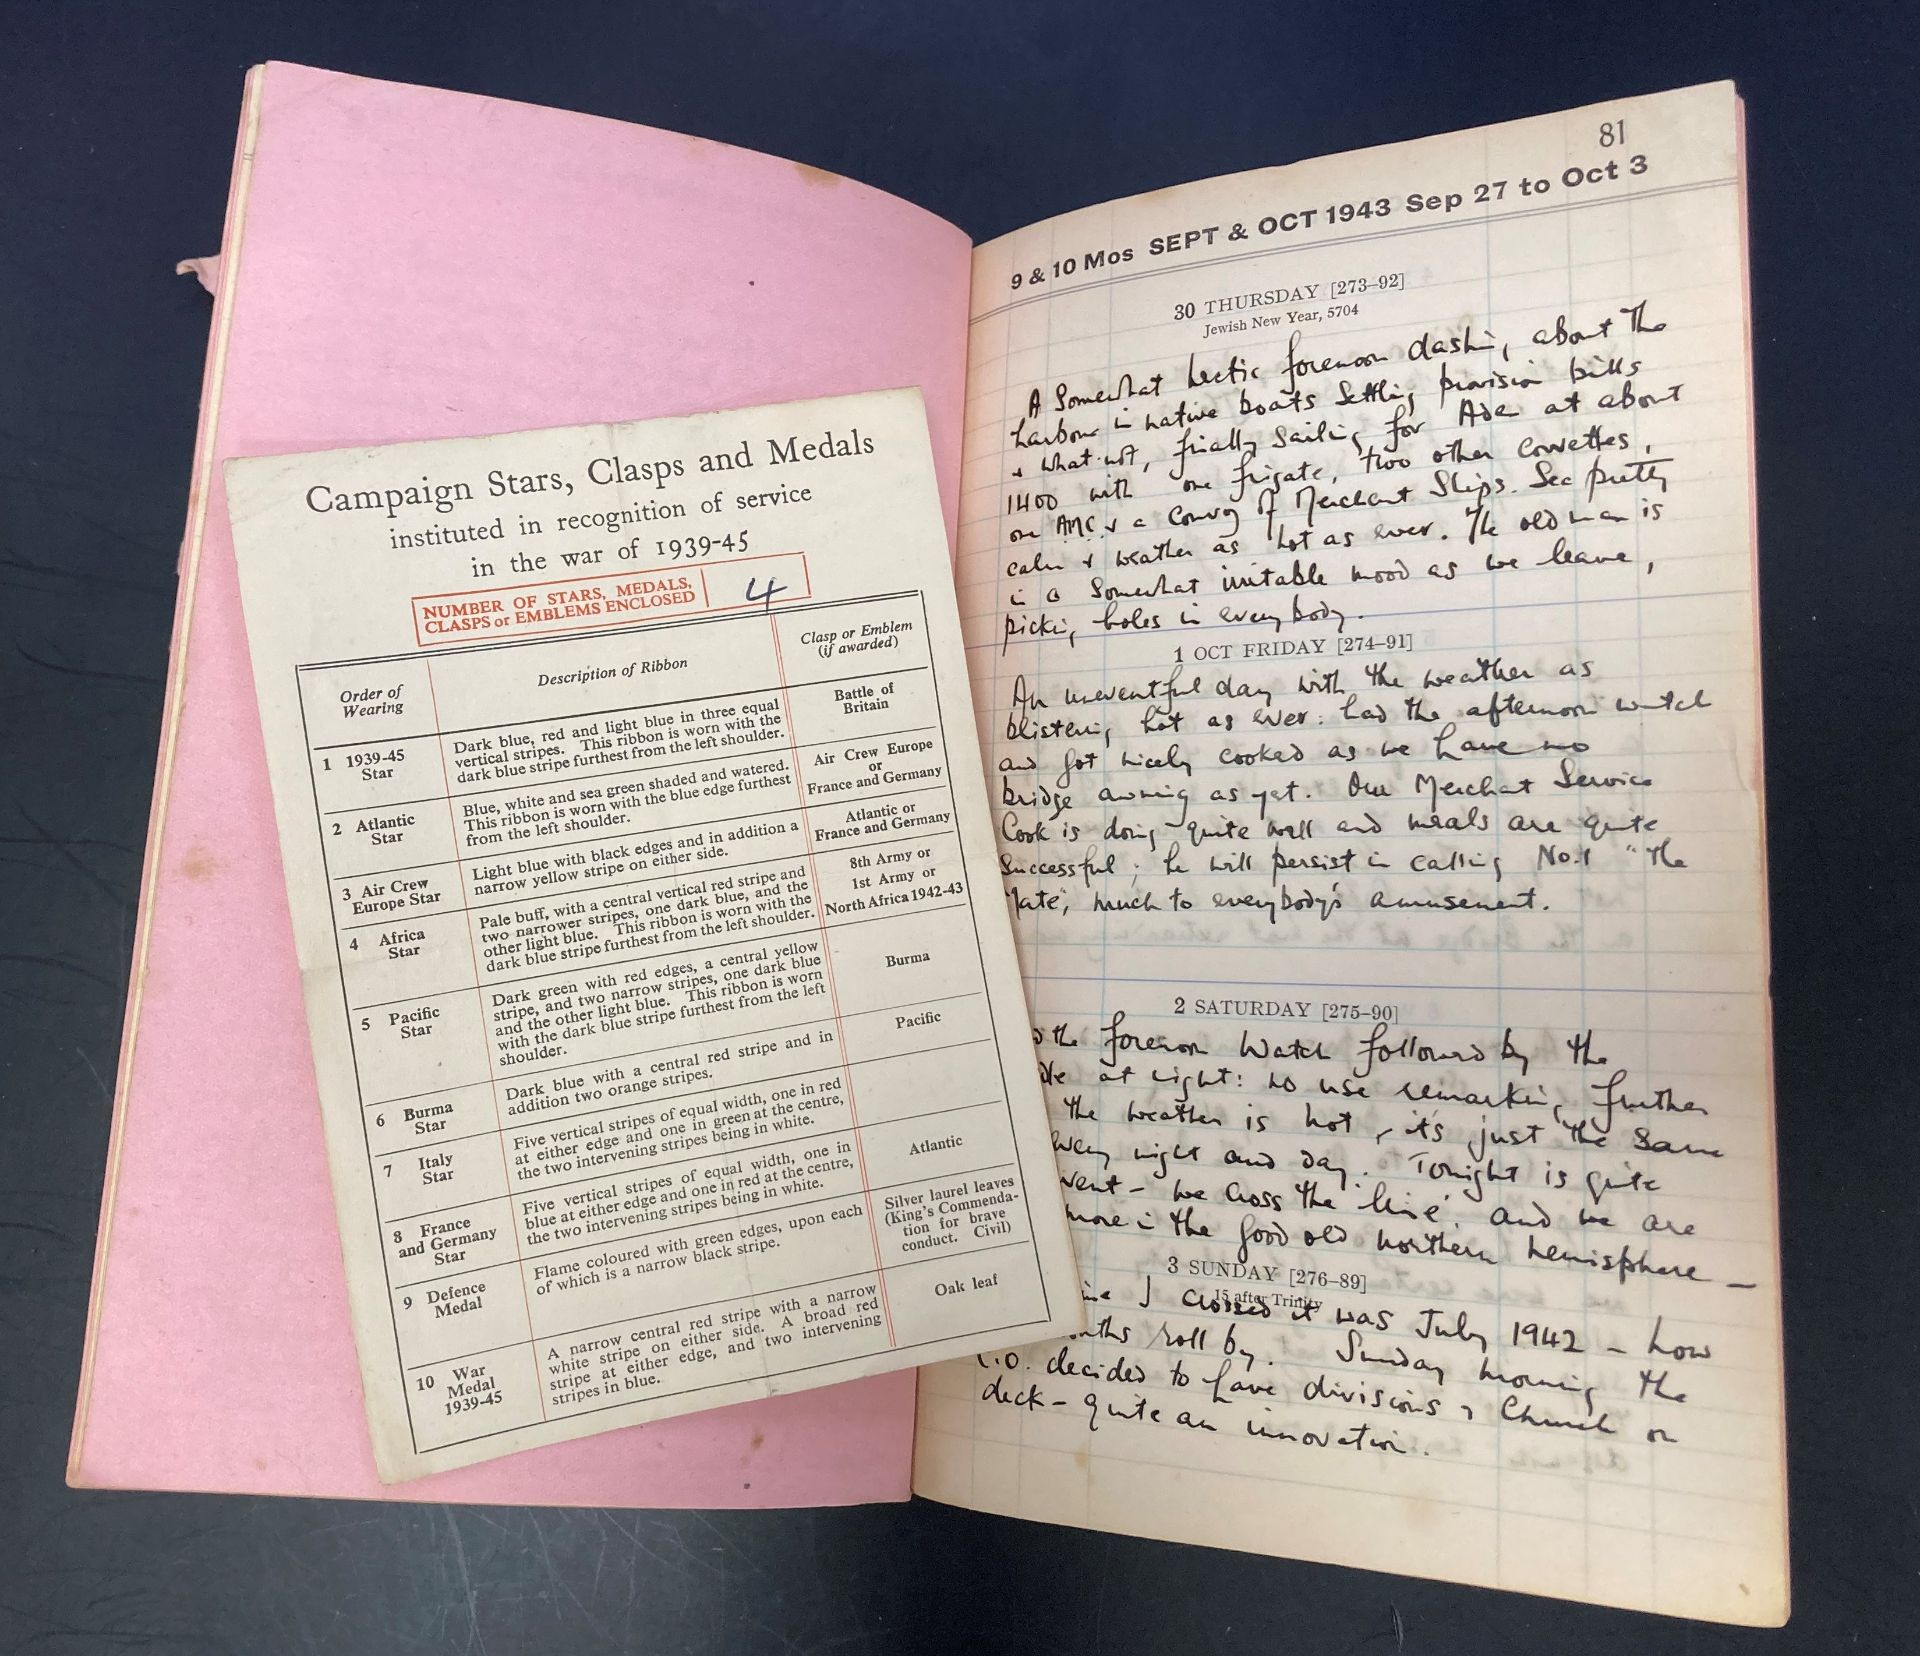 Campaign Stars, Clasps and Medals
instituted in recognition of service
in the war of 1939-45
NUMBER OF STARS, MEDALS,
CLASPS or EMBLEMS ENCLOSED
4
Order of
Wearing
Description of Ribbon
Clasp or Emblem
(if awarded)
1 1939-45
Star
Dark blue, red and light blue in three equal
vertical stripes. This ribbon is worn with the
dark blue stripe furthest from the left shoulder.
Battle of
Britain
2 Atlantic
Star
Blue, white and sea green shaded and watered.
This ribbon is worn with the blue edge furthest
from the left shoulder.
Air Crew Europe
or
France and Germany
3 Air Crew
Europe Star
Light blue with black edges and in addition a
narrow yellow stripe on either side.
Atlantic or
France and Germany
4 Africa
Star
Pale buff, with a central vertical red stripe and
two narrower stripes, one dark blue, and the
other light blue. This ribbon is worn with the
dark blue stripe furthest from the left shoulder.
8th Army or
1st Army or
North Africa 1942-43
5 Pacific
Star
Dark green with red edges, a central yellow
stripe, and two narrow stripes, one dark blue
and the other light blue. This ribbon is worn
with the dark blue stripe furthest from the left
shoulder.
Burma
6 Burma
Star
Dark blue with a central red stripe and in
addition two orange stripes.
Pacific
7 Italy
Star
Five vertical stripes of equal width, one in red
at either edge and one in green at the centre,
the two intervening stripes being in white.
8 France
and Germany
Star
Five vertical stripes of equal width, one in
blue at either edge and one in red at the centre,
the two intervening stripes being in white.
Atlantic
9 Defence
Medal
Flame coloured with green edges, upon each
of which is a narrow black stripe.
Silver laurel leaves
(King's Commenda-
tion for brave
conduct. Civil)
10 War
Medal
1939-45
A narrow central red stripe with a narrow
white stripe on either side. A broad red
stripe at either edge, and two intervening
stripes in blue.
Oak leaf
81
9 & 10 Mos SEPT & OCT 1943 Sep 27 to Oct 3
30 THURSDAY [273–92]
Jewish New Year, 5704
A Somewhat hectic forenoon dashing about the
harbour in native boats settling provision bills
& what-not, finally sailing for Aden at about
1400 with one frigate, two other corvettes,
one AMC & a convoy of Merchant Ships. Sea pretty
calm & weather as hot as ever. The old man is
in a somewhat irritable mood as we leave,
picking holes in everybody.
1 OCT FRIDAY [274–91]
An uneventful day with the weather as
blistering hot as ever: had the afternoon watch
and got nicely cooked as we have no
bridge awning as yet. Our Merchant Service
Cook is doing quite well and meals are quite
successful; he will persist in calling No.1 "the
Mate", much to everybody's amusement.
2 SATURDAY [275–90]
the forenoon watch followed by the
at night: no use remarking further
the weather is hot, it's just the same
every night and day. Tonight is quite
event - we cross the 'line', and we are
more in the good old northern hemisphere -
3 SUNDAY [276–89]
15 after Trinity
I crossed it was July 1942 - how
roll by. Sunday morning the
C.O. decided to have divisions & Church on
deck - quite an innovation.